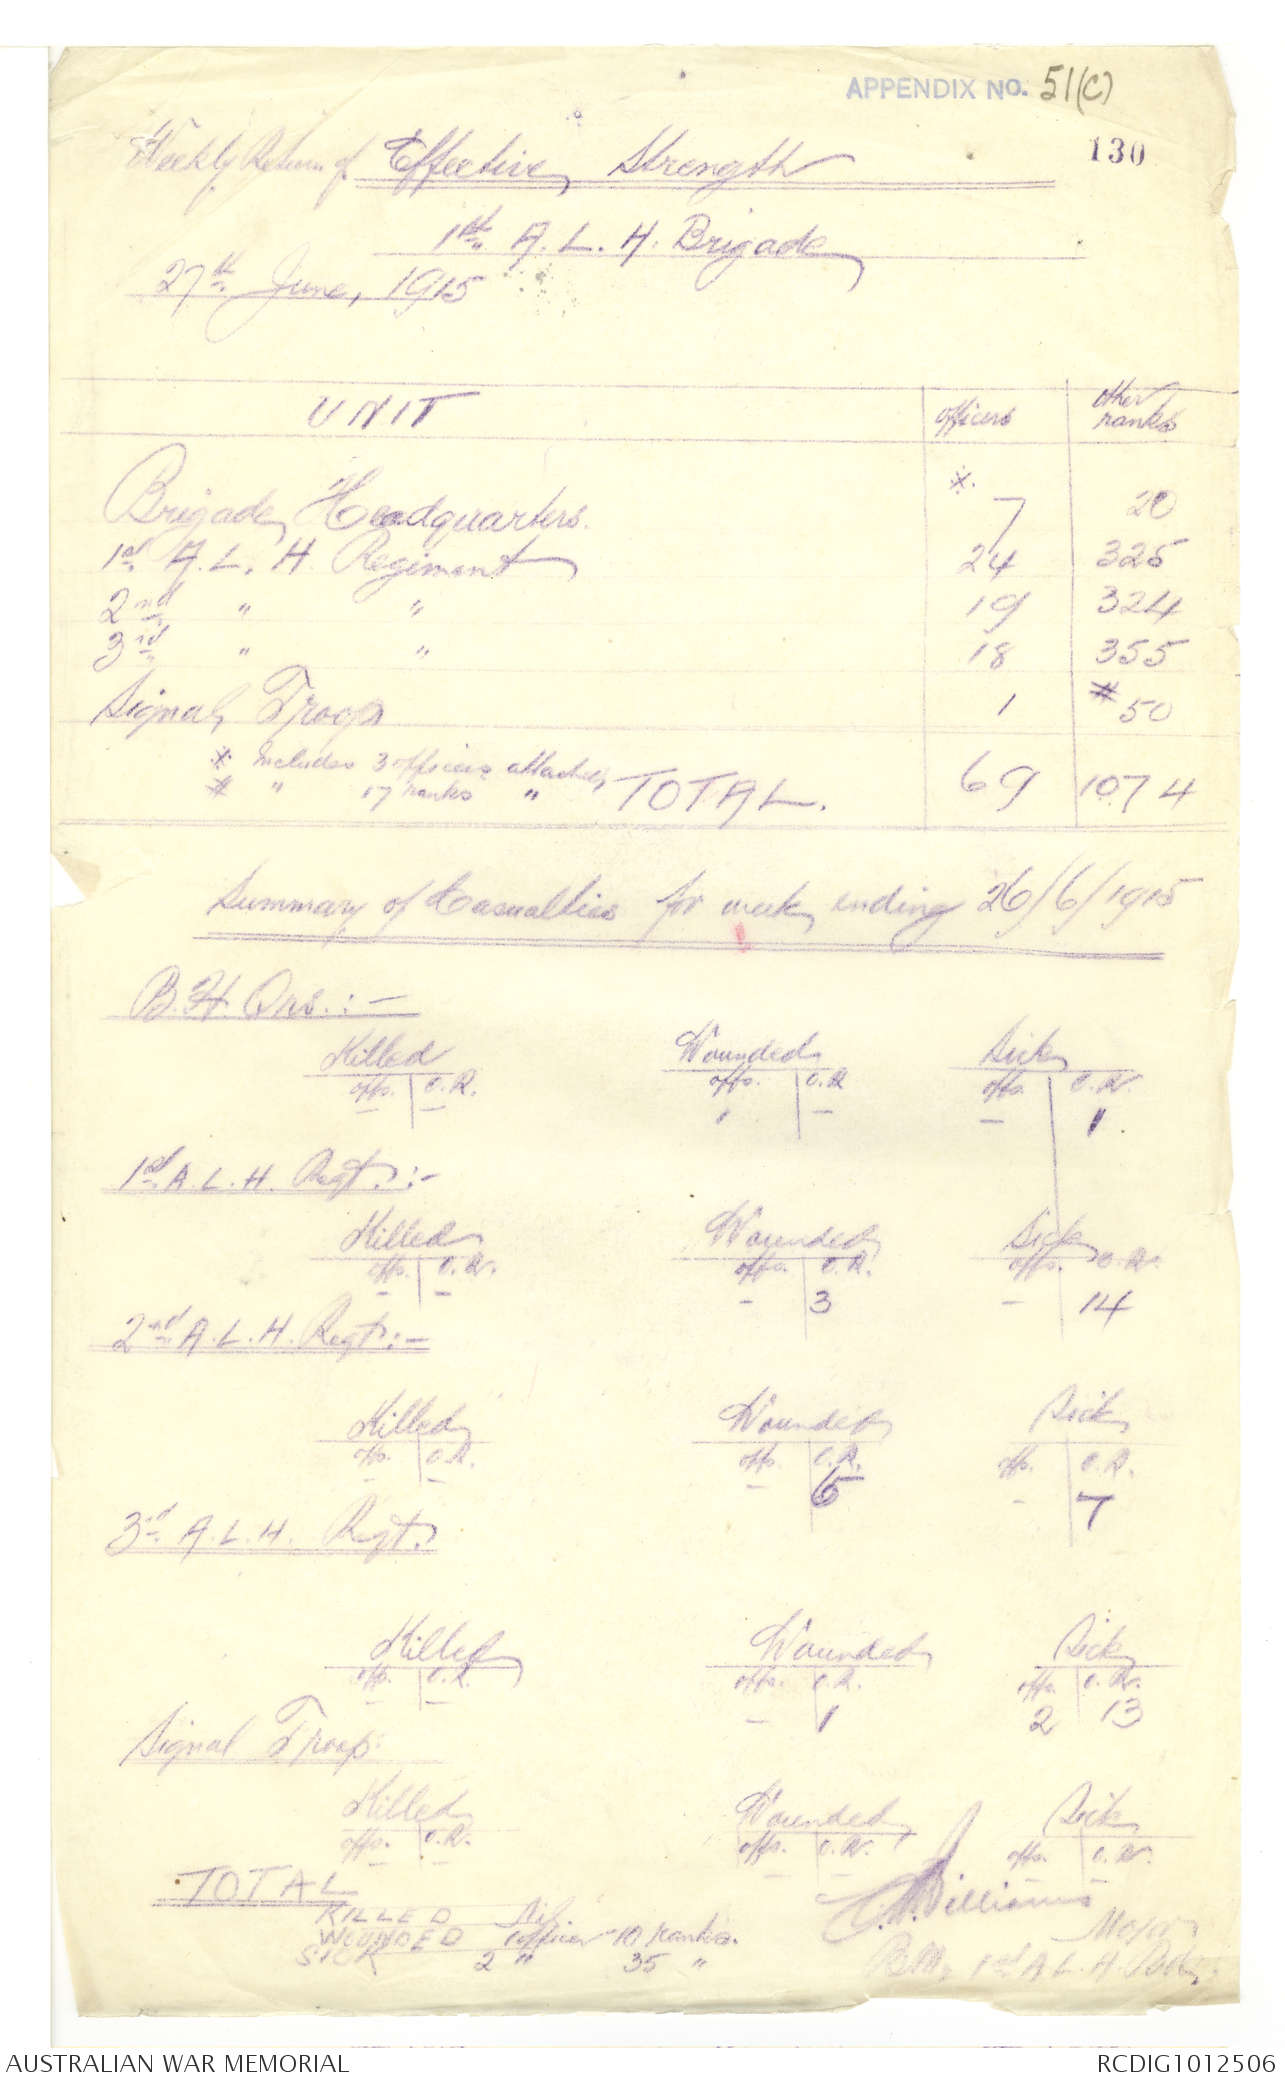 APPENDIX NO. 51(C)
130
Weekly Return of Effective Strength
1st A. L. H. Brigade
27th June, 1915
UNIT officers other ranks
Brigade Headquarters. * 7 20
1st A. L. H. Regiment 24 325
2nd " " 19 324
3rd " " 18 355
Signal Troop 1 # 50
* Includes 3 officers attached
# " 17 ranks "
TOTAL. 69 1074
Summary of Casualties for week ending 26/6/1915
B. H. Qrs. :-
Killed Wounded Sick
offs. O.R. offs. O.R offs. O.R.
- - 1 - - 1.
1st A. L. H. Regt. :-
Killed Wounded Sick
offs. O.R. offs. O.R. offs. O.R.
- - - 3 - 14
2nd A. L. H. Regt :-
Killed Wounded Sick
offs. O.R. offs. O.R. offs. O.R.
- - - 6 - 7
3rd A. L. H. Regt.
Killed Wounded Sick
offs. O.R. offs. O.R. offs. O.R.
- - - 1 2 13
Signal Troop.
Killed Wounded Sick
offs. O.R. offs. O.R. offs. O.R.
- - - - - -
TOTAL
KILLED Nil
WOUNDED 1 officer - 10 ranks.
SICK 2 " 35 "
Williams
Major
B.M. 1st A. L. H. Bde.
AUSTRALIAN WAR MEMORIAL RCDIG1012506